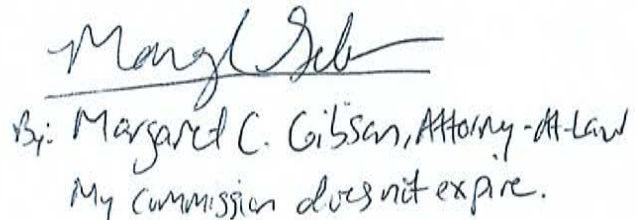 By: Margaret C. Gibson, Attorney-At-Law
My commission does not expire.